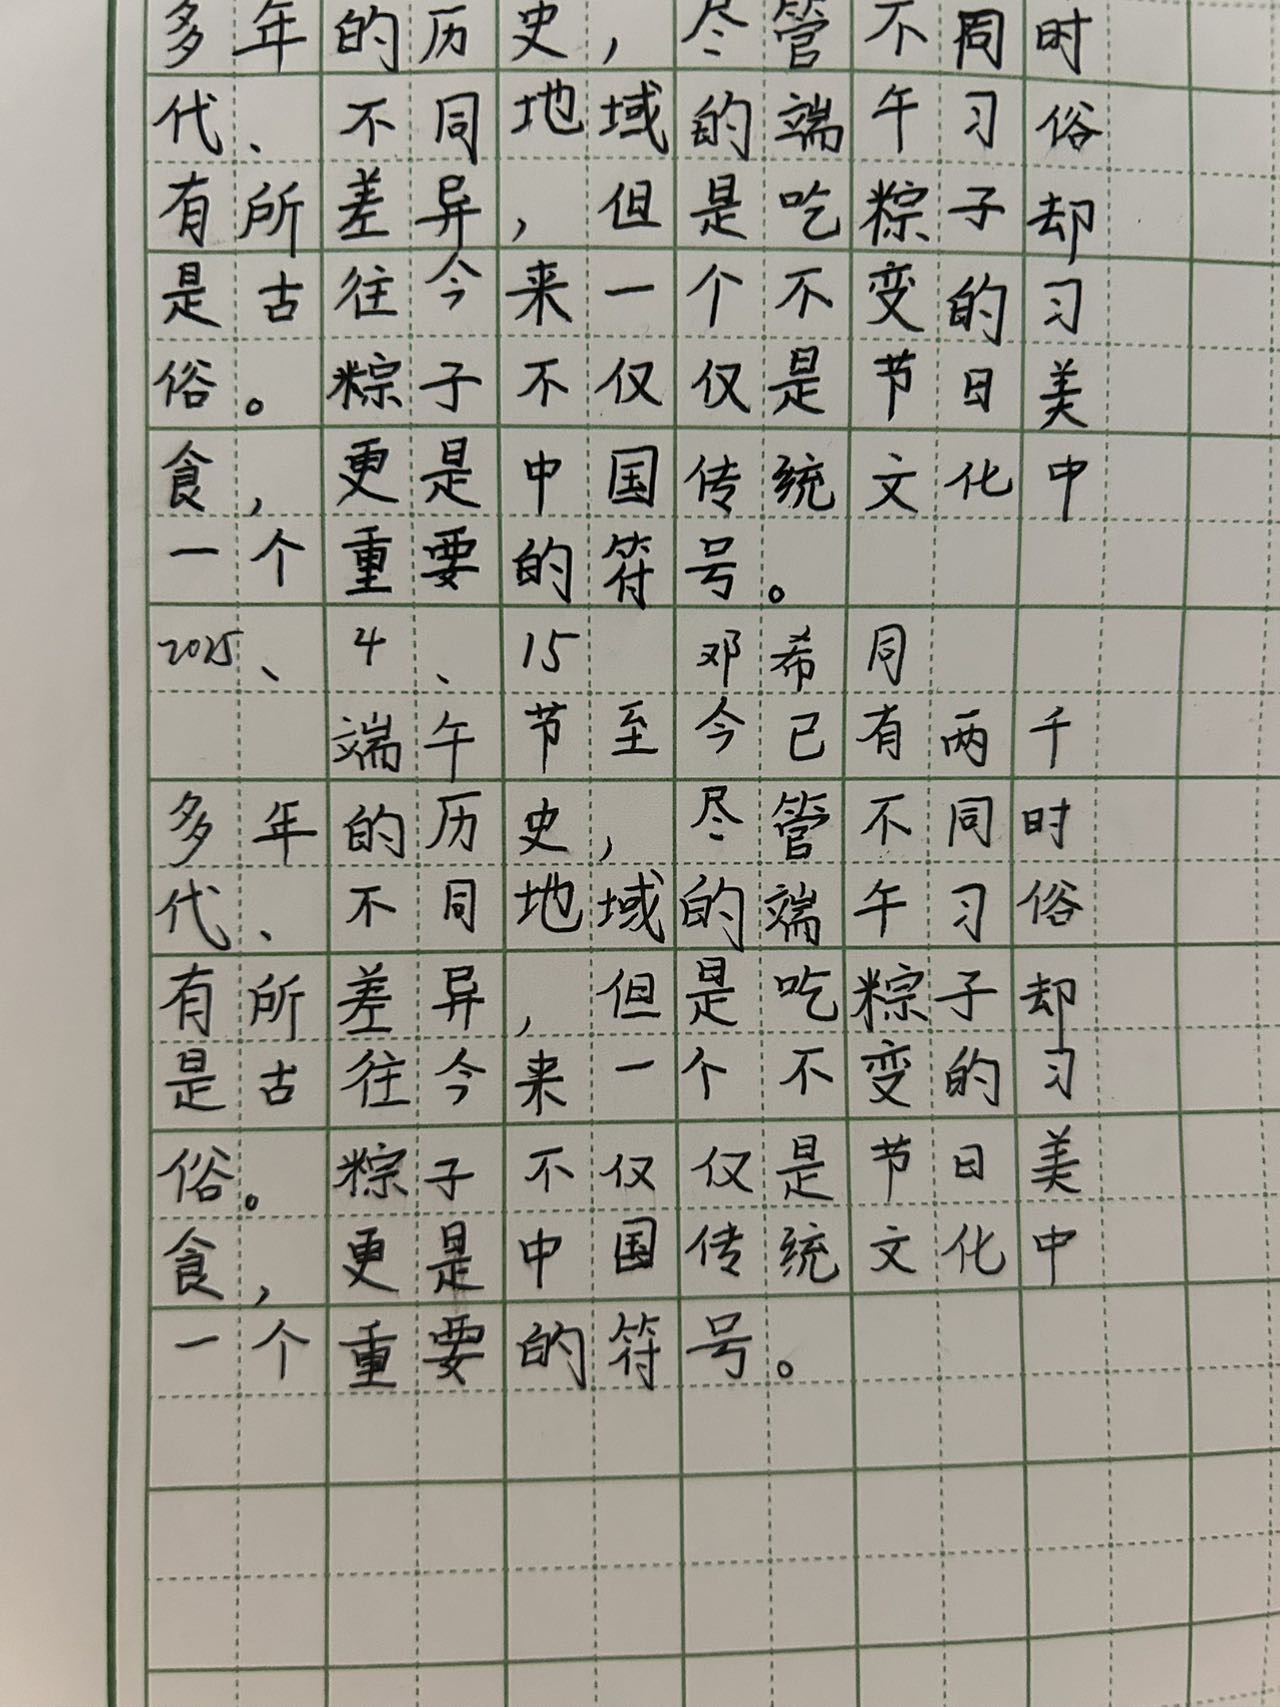 多年的历史，尽管不同时
代、不同地域的端午习俗
有所差异，但是吃粽子却
是古往今来一个不变的习
俗。粽子不仅仅是节日美
食，更是中国传统文化中
一个重要的符号。
2025、4、15 邓希同
端午节至今已有两千
多年的历史，尽管不同时
代、不同地域的端午习俗
有所差异，但是吃粽子却
是古往今来一个不变的习
俗。粽子不仅仅是节日美
食，更是中国传统文化中
一个重要的符号。